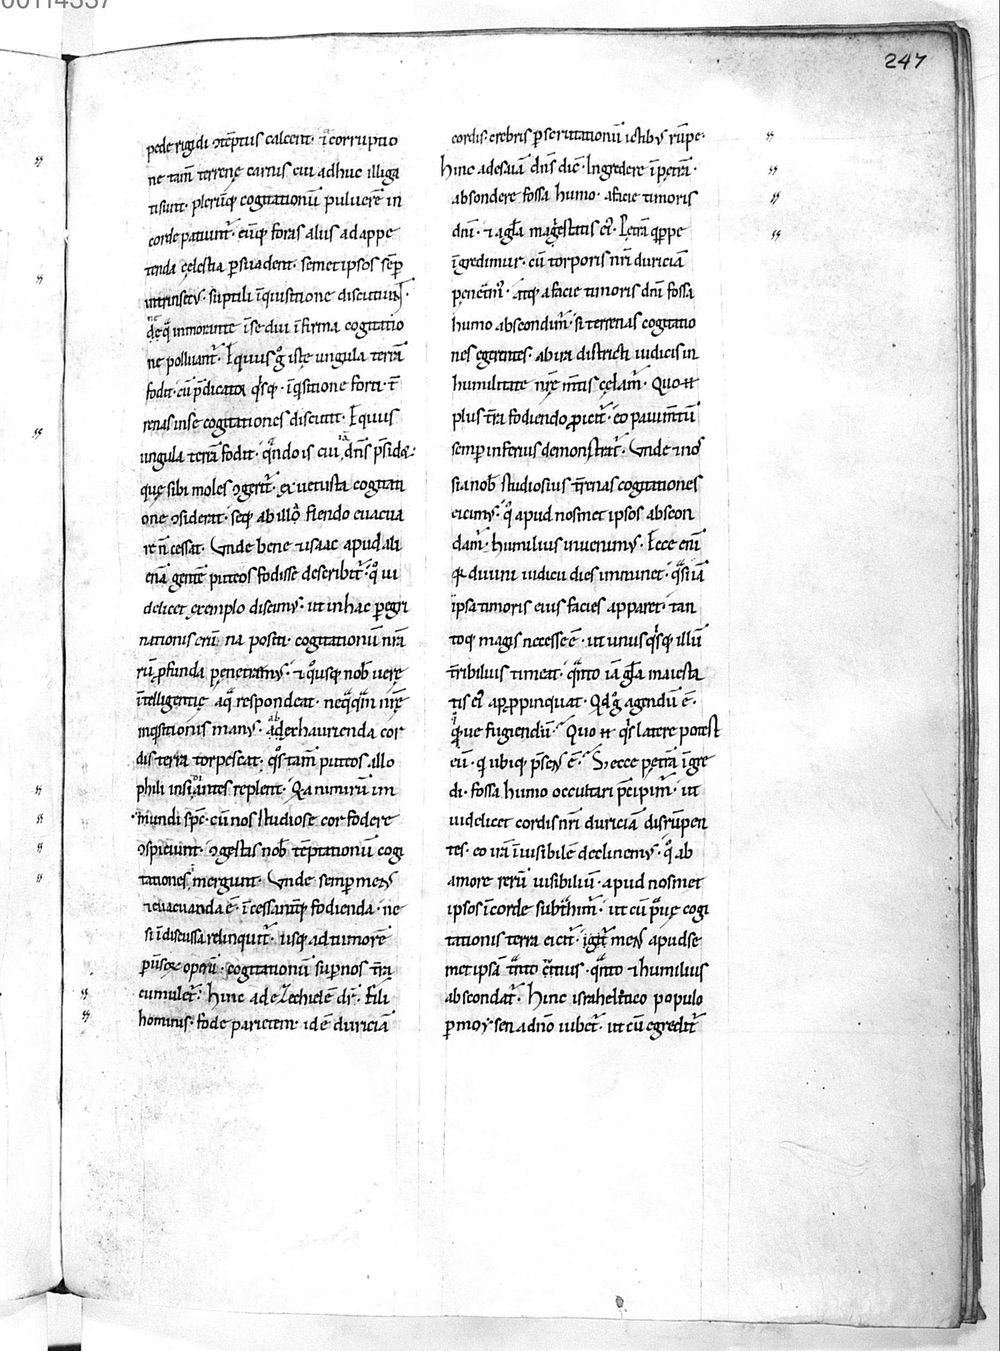 247
pede rigidi ↄtēptus calcent· ī corruptio
ne tam̄ terrenę carnis cui adhuc illiga
ti sunt· plerūq; cogitationū puluerē in
corde patiunt̄· cūq; foras alus ad appe
tenda cęlestia psuadent· semet ipsos sēp
intrinsecꝰ· suptili īquisitione discutiunt·
ne
de q̄ inmorante īse diu īfirma cogitatio
ne polluant̄· Equus g̊ iste ungula terrā
fodit· cū p̄dicator q̇sq;· īq̇sitione forti· t̄
renas in se cogitationes discutit· Equus
ungula terrā fodit· q̄ndo is cui iā dn̄s p̄sidet·
quę sibi moles ↄgerit̄· ex uetusta cogitati
one ↄsiderat· seq; ab illo q̊ flendo euacua
re n̄ cessat· Vnde bene ⁊ isaac apud ali
enā gentē puteos fodisse describit̄· q̊ ui
delicet exemplo discimꝰ· ut in hac pegri
nationis erūna positi· cogitationū nr̄a
rū pfunda penetremꝰ· ⁊ q̊usq; nob̄ uerę
ītelligentię aq̄ respondeat· neq̄q̄m nr̄ę
inq̇sitionis manꝰ· ab
ad exhaurienda cor
dis terra torpescat· q̊s tam̄ puteos allo
phili insidiantes replent· Q̇a nimirū im
mundi sp̄c· cū nos studiose cor fodere
ↄspiciunt· ↄgestas nob̄ tēptationū cogi
tationes mergunt· Vnde semp mens
⁊ euacuanda ē· īcessantq; fodienda· ne
si īdiscussa relinquit̄· usq; ad tumorē
puersoꝝ operū· cogitationū sup nos t̄ra
cumulet̄· Hinc ad eZechielē dr̄· Fili
hominis· fode parietem· id ē duriciā
cordis· crebris pscrutationū ictibꝰ rūpe·
Hinc ad esaiā dn̄s dic̄· Ingredere ī petrā·
abscondere fossa humo· a facie timoris
dn̄i· ⁊ a gl̄a magestatis ei ꝰ· Petrā q̇ppe
īgredimur· cū torporis nr̄i duriciā
penetm̄ꝰ· atq; a facie timoris dn̄i fossa
humo abscondim̄· si terrenas cogitatio
nes egerentes· ab ira districti iudicis in
humilitate nr̄ę m̄tis cęlam̄· Quo n̄
plus t̄ra fodiendo ꝓicit̄· eo pauim̄tū
semp inferius demonstrat̄· Vnde ⁊ nos
si a nob̄ studiosius t̄renas cogitationes
eicimꝰ· q̊ apud nosmet ipsos abscon
dam̄· humilius inuenimꝰ· Ecce enī
q̇a diuini iudicii dies imminet· q̄si iā
ipsa timoris eius facies apparet· tan
toq; magis necesse ē· ut unus q̇sq; illū
t̄ribilius timeat· q̄nto iā gl̄a maiesta
tis eiꝰ appropinquat· Q̇d g̊ agendū ē·
q̇ ue fugiendū· Quo n̄ q̇s latere potest
eū· q̇ ubiq; p̄sens ē· S; ecce petrā īgre
di· fossa humo occultari p̄cipim̄· ut
uidelicet cordis nr̄i duriciā disrūpen
tes· eo irā īuisibilē declinemꝰ· q̊ ab
amore rerū uisibiliū· apud nosmet
ipsos ī corde subt̄him̄· ut cū prauę cogi
tationis terra eicit̄· igit̄ mens apud se
met ipsā t̄nto certius· q̄nto ⁊ humilius
abscondat̄· Hinc israhelitico populo
p moysen a dn̄o iubet̄· ut cū egredit̄